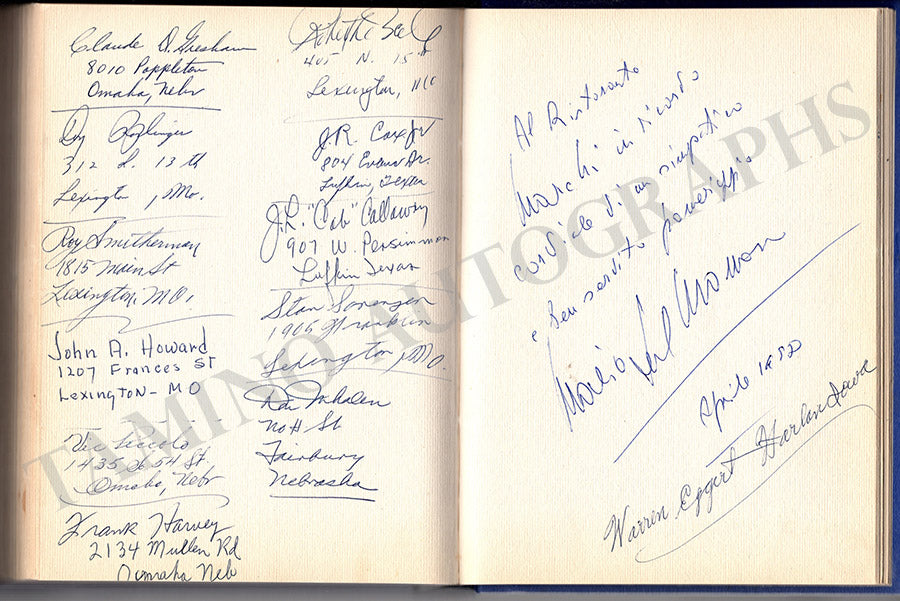 Claude D. Gresham
8010 Poppleton
Omaha, Nebr
312 S. 13 th
Lexington, Mo.
Roy Smitherman
1815 Main St
Lexington, MO.
John A. Howard
1207 Frances St
Lexington - MO
Vic
1435 So 54 St
Omaha, Nebr
Frank Harvey
2134 Mullen Rd
Oomaha Neb
405 N. 15th
Lexington, Mo
J.R. Cox Jr
804 Evans Dr.
Lufkin, Texas
J.L. "Cab" Callaway
907 W. Persimmon
Lufkin Texas
Stan Sorensen
1905 Franklin
Lexington, Mo.
No H St
Fairbury
Nebraska
Al Ristorante
Marchi in ricordo
cordiale di un simpatico
e ben servito pomeriggio
Mario Del Monaco
Aprile
Warren Eggert Harlan Iowa
TAMINO AUTOGRAPHS